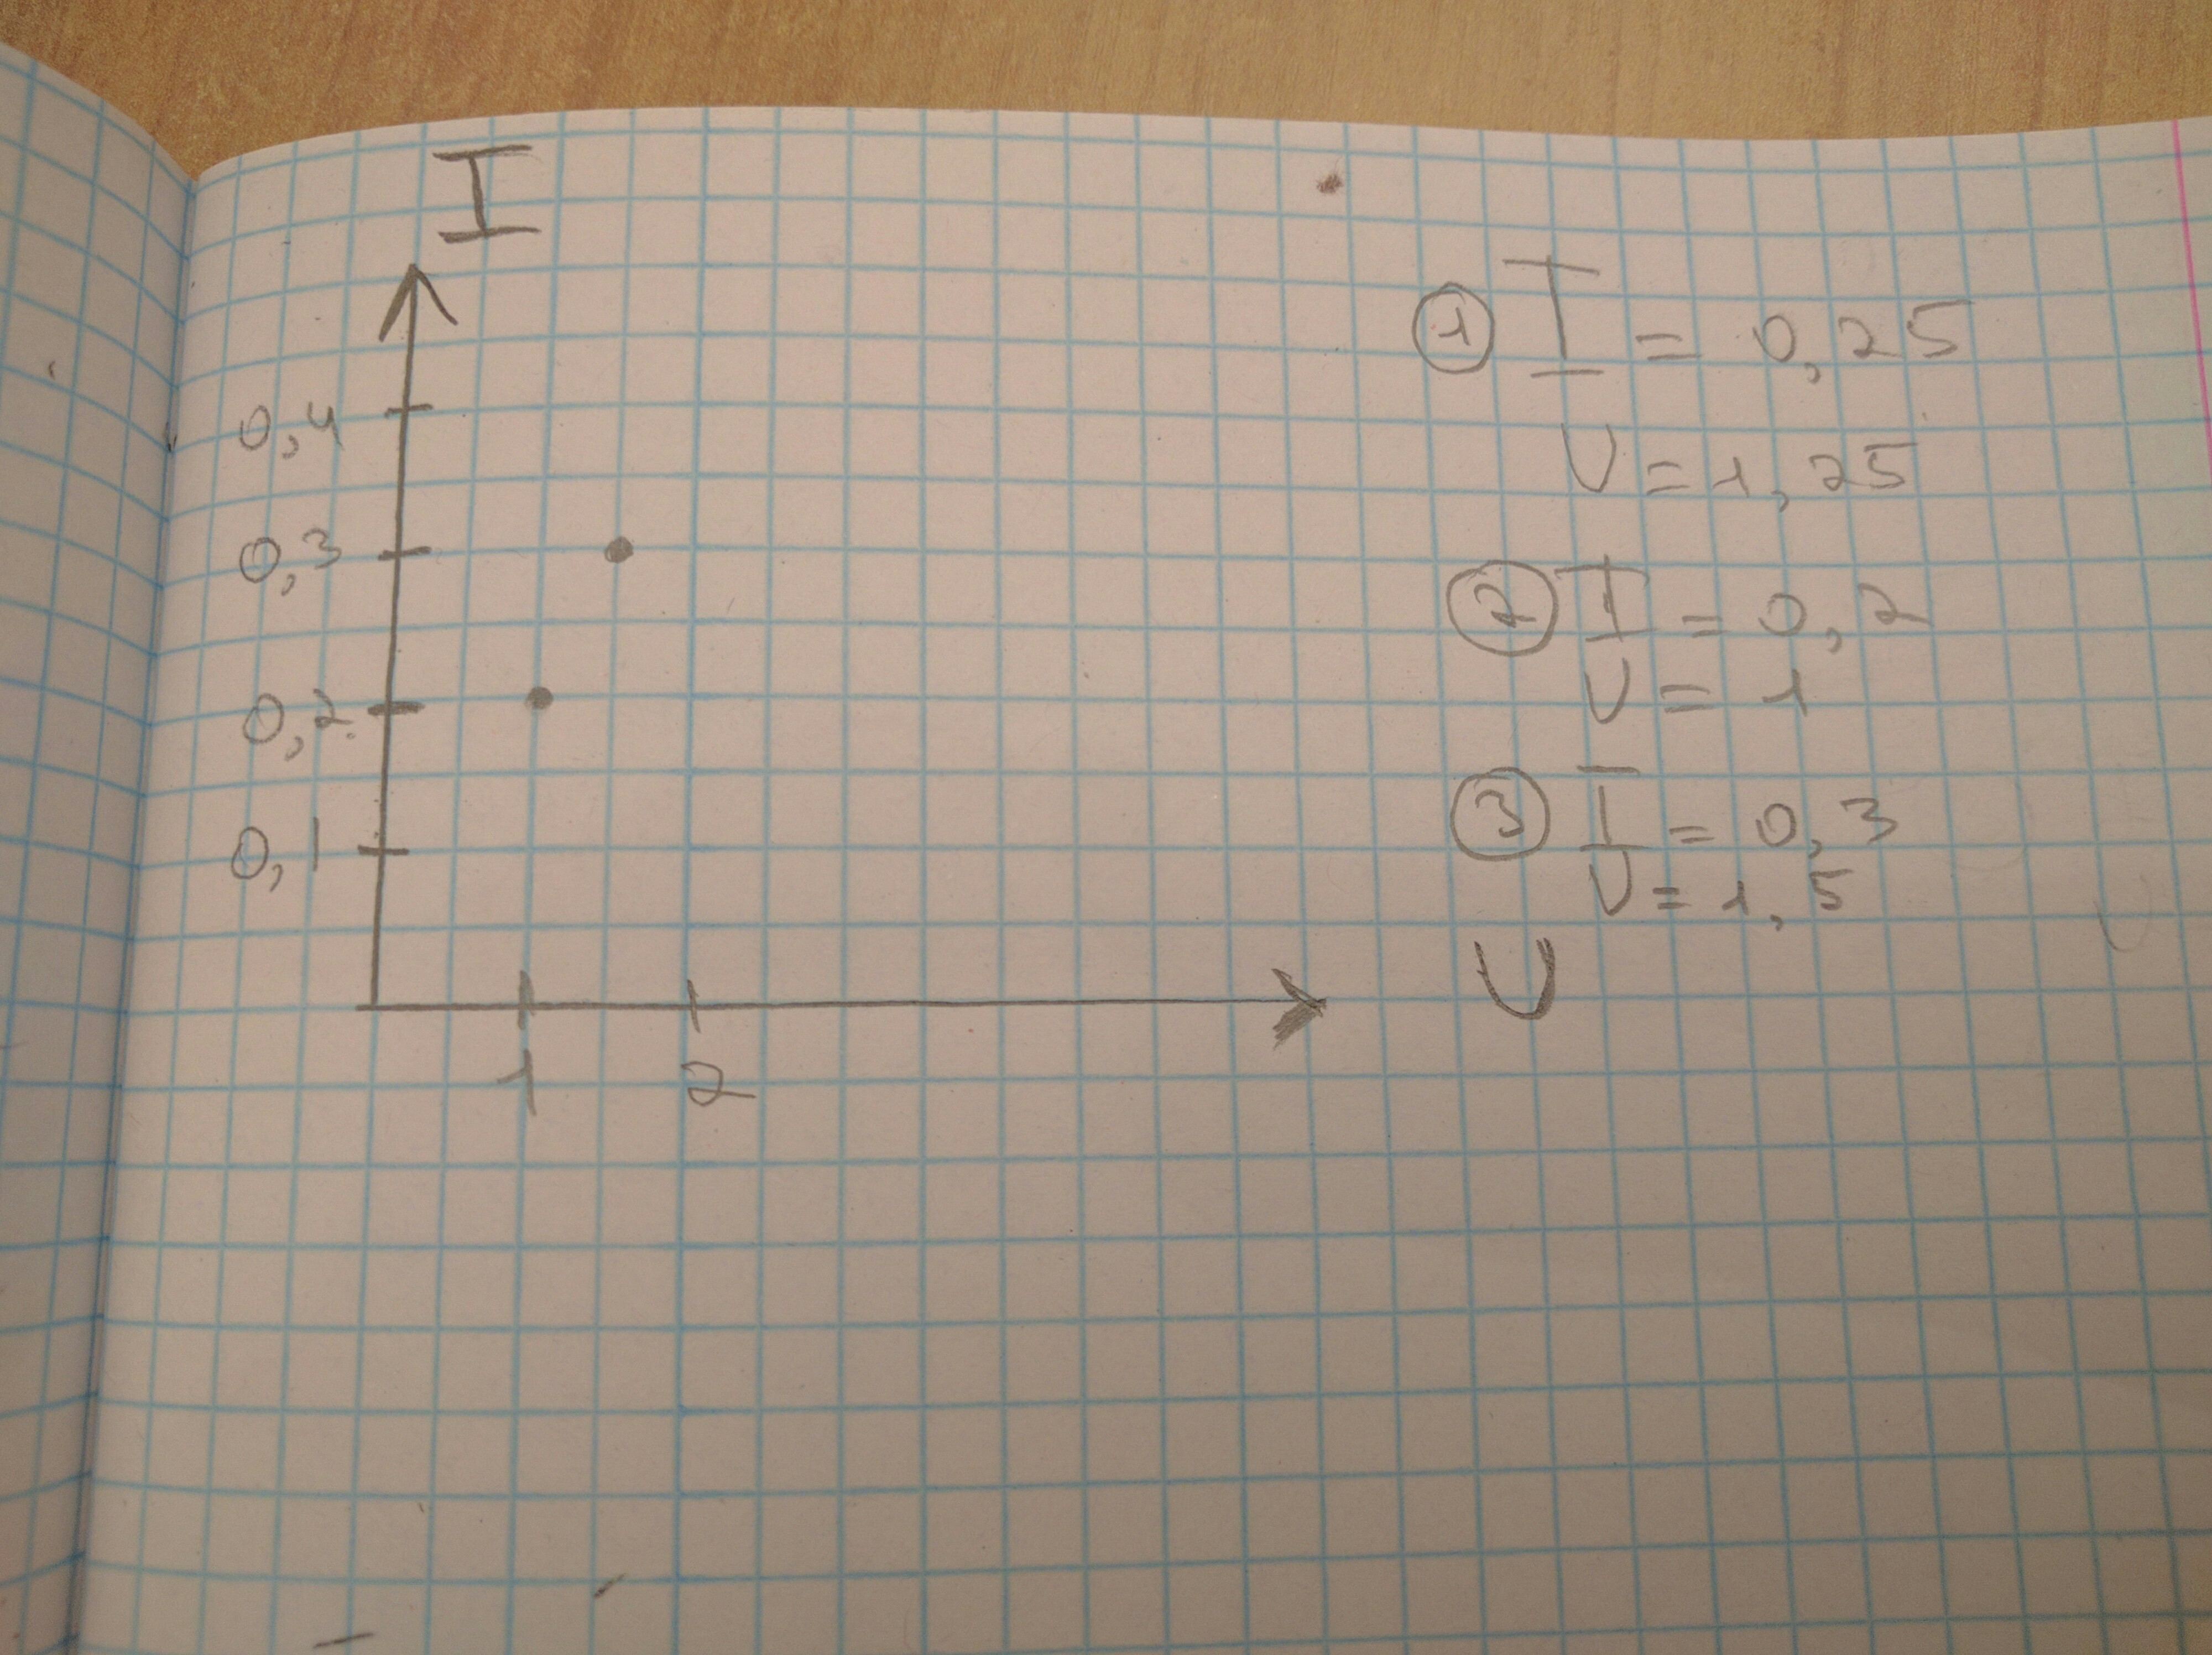 I
0,4
0,3
0,2
0,1
1 2
① I = 0,25
U = 1,25
② I = 0,2
U = 1
③ I = 0,3
U = 1,5
U